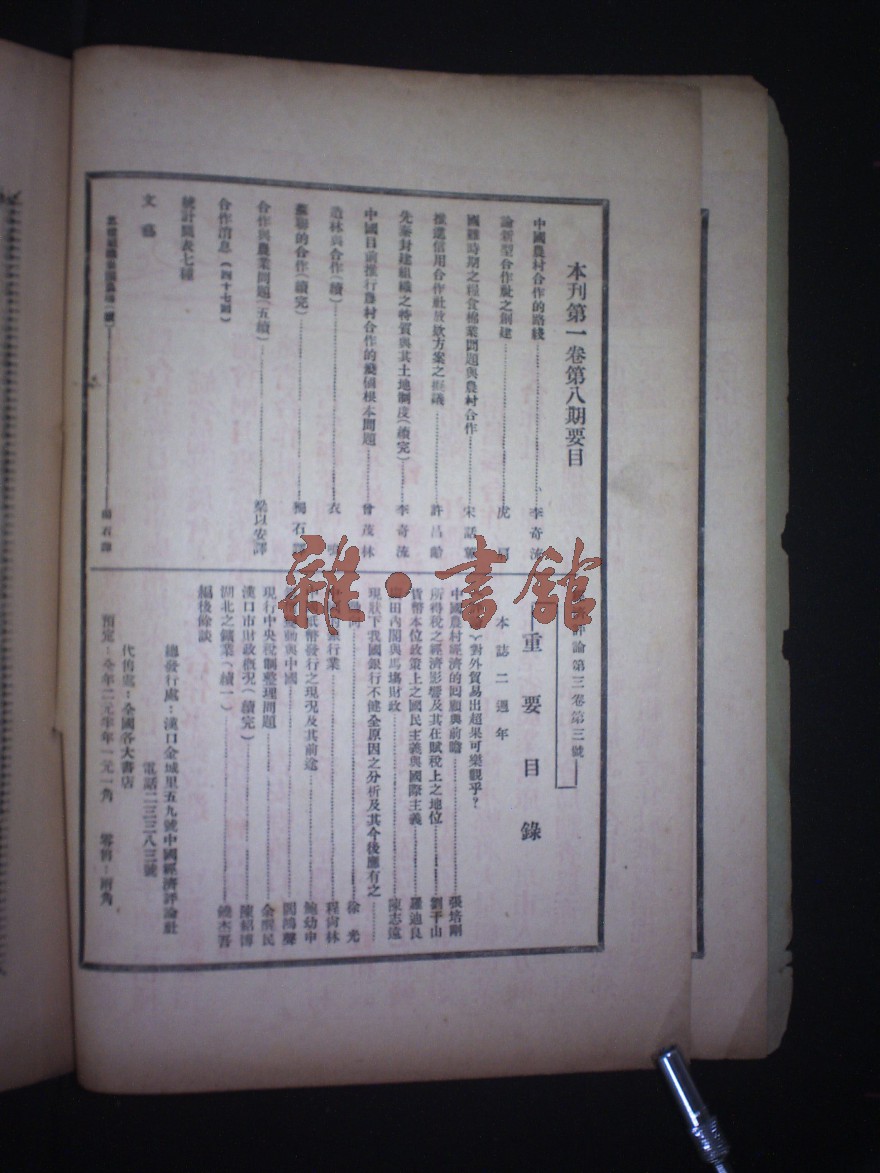 本刊第一卷第八期要目
中國農村合作的路綫……李奇流
論新型合作社之創建……虎
國難時期之糧食棉業問題與農村合作……宋
推進信用合作社放欵方案之擬議……許昌齡
先秦封建組織之特質與其土地制度(續完)……李奇流
中國目前推行農村合作的幾個根本問題……曾茂林
造林與合作(續)……衣
蘇聯的合作(續完)……石譯
合作與農業問題(五續)……梁以安譯
合作消息(四十七則)
統計圖表七種
文藝
評論第三卷第三號
重要目錄
本誌二週年
對外貿易出超果可樂觀乎?
中國農村經濟的回顧與前瞻……張培剛
所得稅之經濟影響及其在賦稅上之地位……劉干山
貨幣本位政策上之國民主義與國際主義……羅迪良
田內閣與馬塲財政……陳志遠
現狀下我國銀行不健全原因之分析及其今後應有之
……徐光
銀行業……程宵林
幣發行之現況及其前途……鮑幼申
動與中國……閻鴻聲
現行中央稅制整理問題……余醒民
漢口市財政概況(續完)……陳紹博
湖北之鑛業(續一)……饒杰吾
編後餘談
總發行處:漢口金城里五九號中國經濟評論社
電話二三三八三號
代售處:全國各大書店
預定—全年二元半年一元一角 零售—兩角
雜·書館